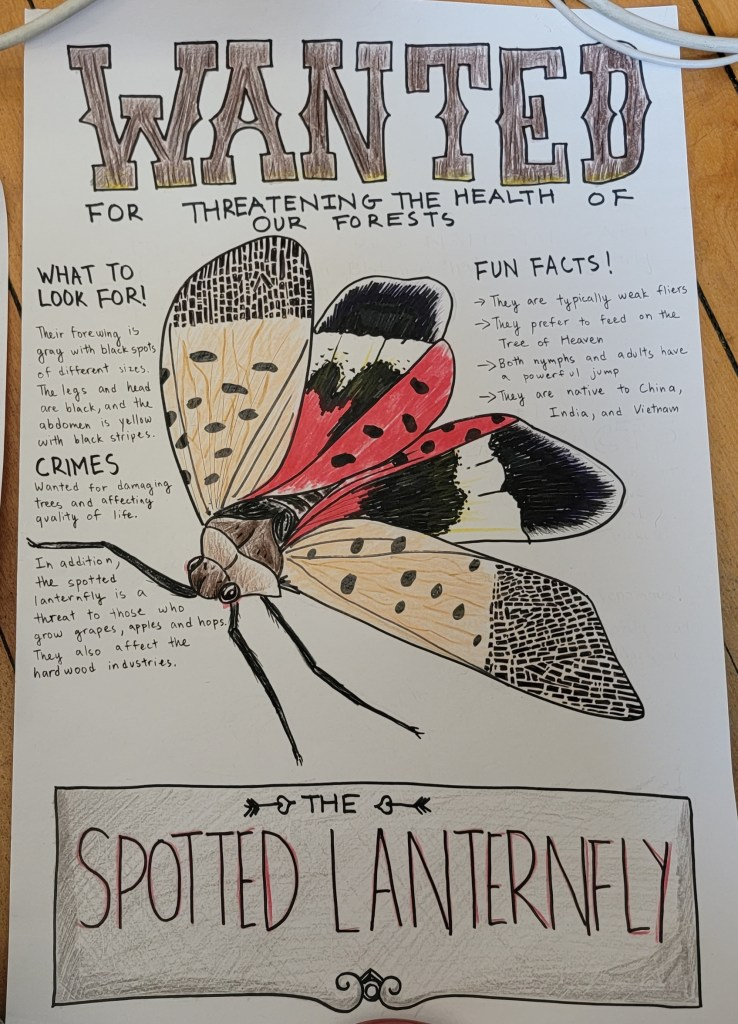 WANTED
FOR THREATENING THE HEALTH OF
OUR FORESTS
WHAT TO
LOOK FOR!
Their forewing is
gray with black spots
of different sizes.
The legs and head
are black, and the
abdomen is yellow
with black stripes.
CRIMES
Wanted for damaging
trees and affecting
quality of life.
In addition,
the spotted
lanternfly is a
threat to those who
grow grapes, apples and hops.
They also affect the
hardwood industries.
FUN FACTS!
→ They are typically weak fliers
→ They prefer to feed on the
Tree of Heaven
→ Both nymphs and adults have
a powerful jump
→ They are native to China,
India, and Vietnam
THE
SPOTTED LANTERNFLY